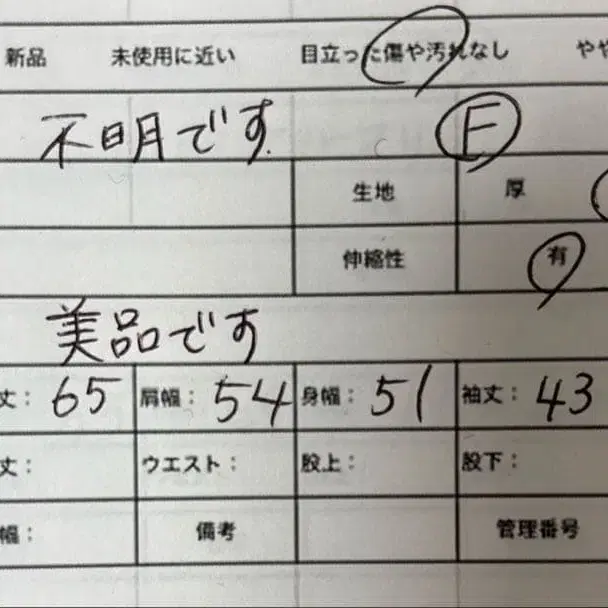 新品 未使用に近い 目立った傷や汚れなし やや
不明です F
生地 厚
伸縮性 有
美品です
丈: 65 肩幅: 54 身幅: 51 袖丈: 43
丈: ウエスト: 股上: 股下:
幅: 備考 管理番号